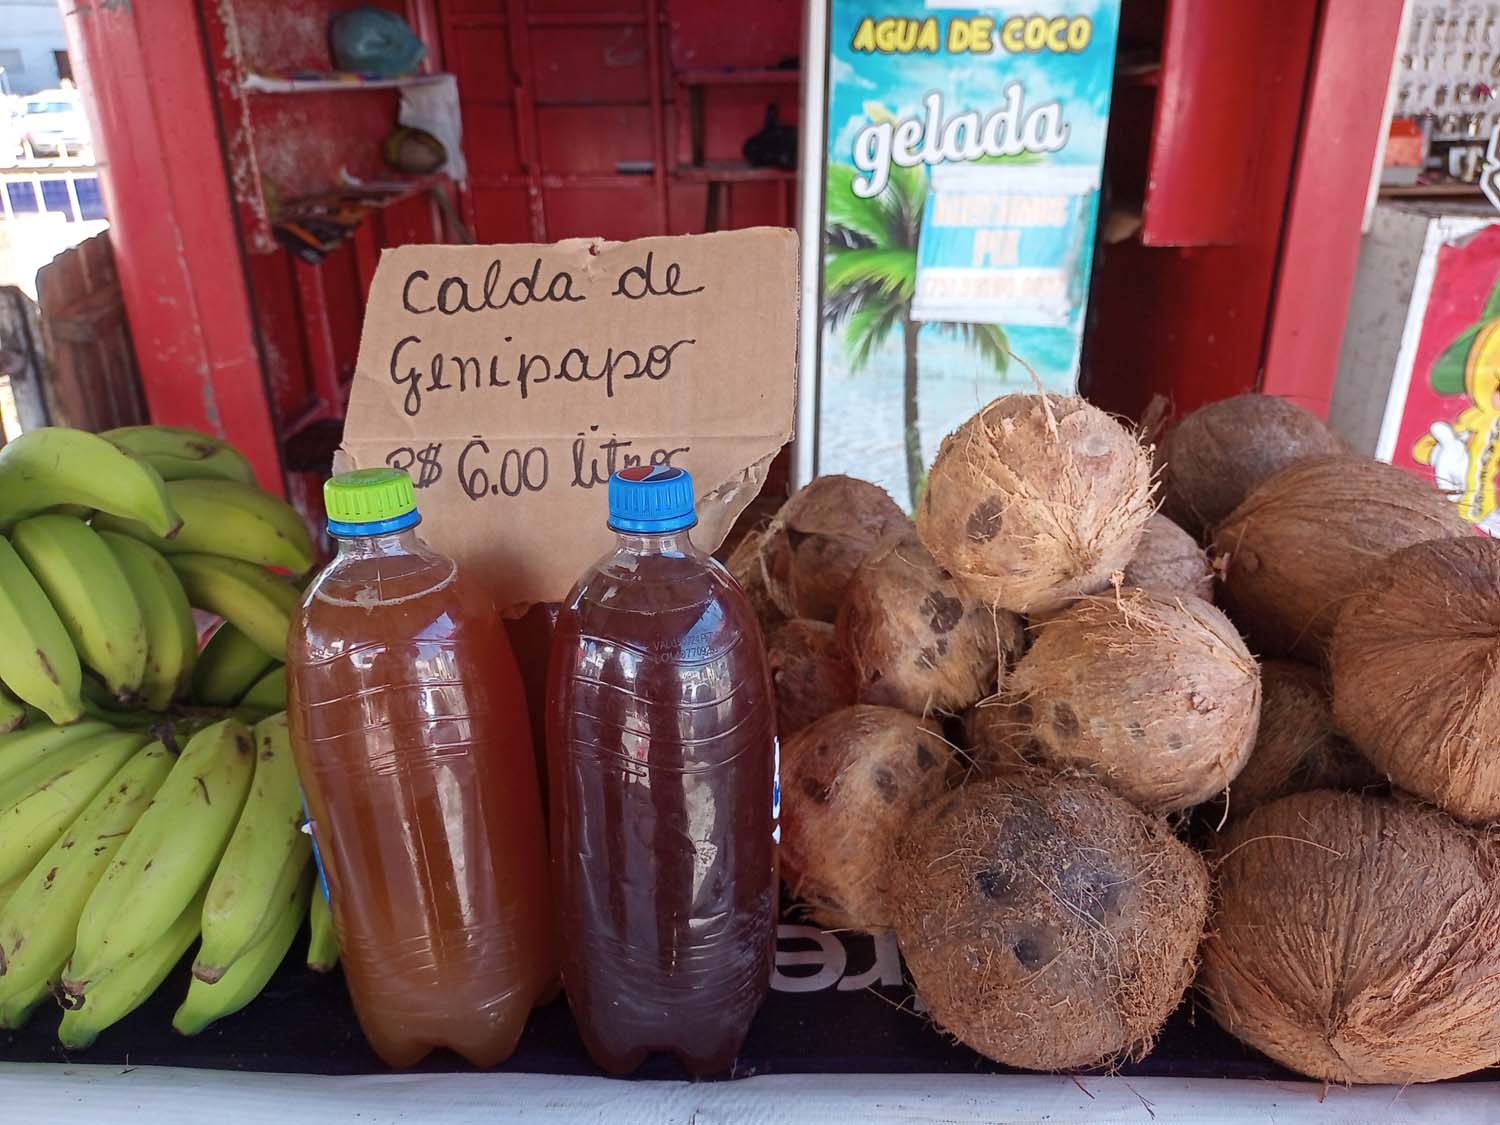 AGUA DE COCO
gelada
PIX
Calda de
Genipapo
R$ 6.00 litro